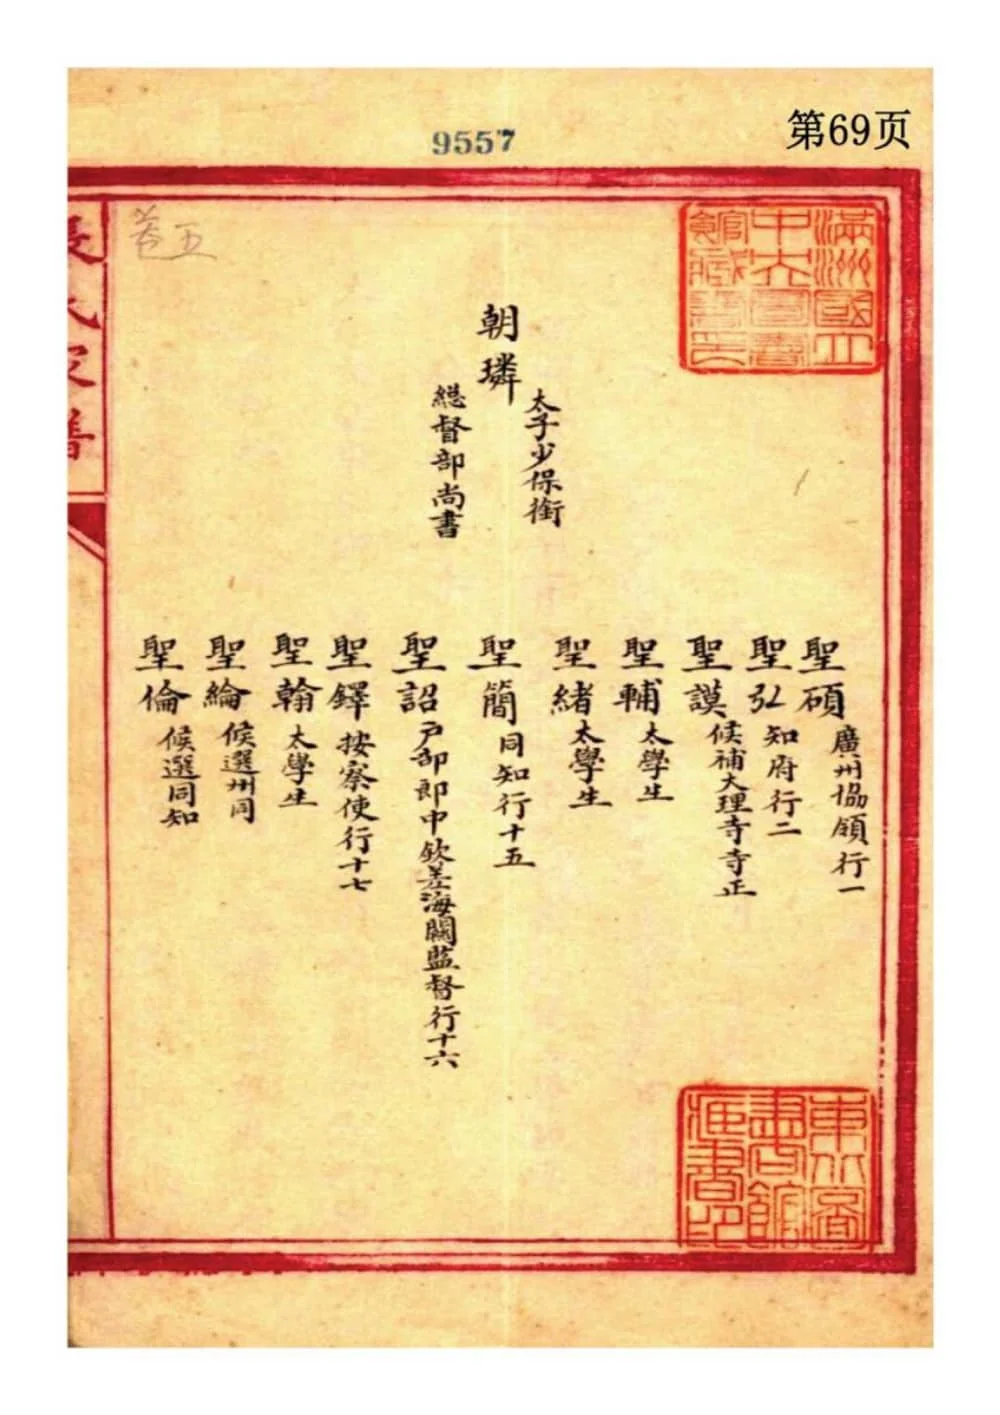 第69页
9557
滿洲國立
中央圖書
館藏書印
卷五
氏家譜
朝璘
太子少保銜
總督部尚書
聖碩 廣州協領行一
聖弘 知府行二
聖謨 候補大理寺寺正
聖輔 太學生
聖緒 太學生
聖簡 同知行十五
聖詔 户部郎中欽差海關監督行十六
聖鐸 按察使行十七
聖翰 太學生
聖綸 候選州同
聖倫 候選同知
東北圖
書館
書印